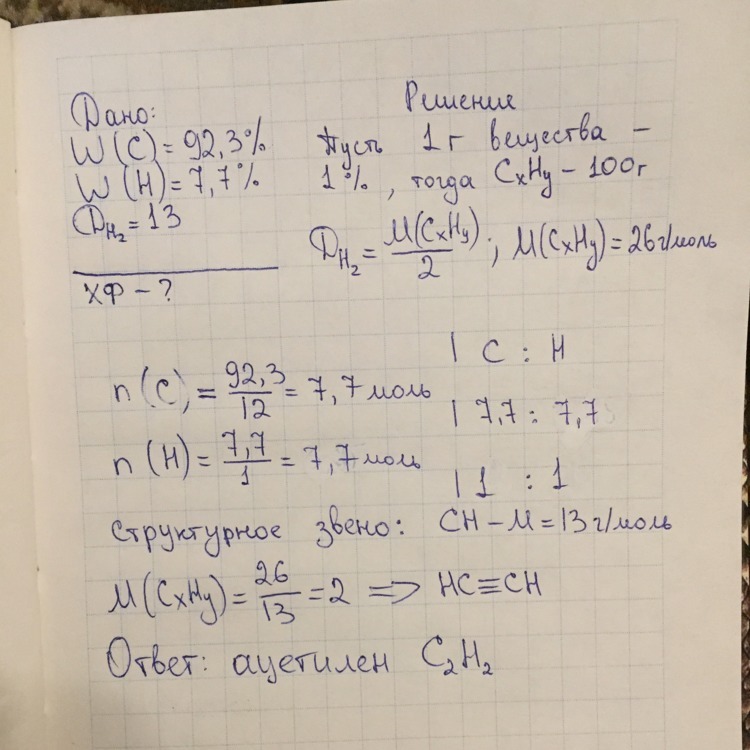 Дано:
W(C)=92,3%
W(H)=7,7%
D_H₂=13
ХФ-?
Решение
Пусть 1г вещества -
1%, тогда CxHy - 100г
D_H₂ = M(CxHy)/2; M(CxHy)=26г/моль
n(C) = 92,3/12 = 7,7моль
n(H) = 7,7/1 = 7,7моль
| C : H
| 7,7 : 7,7
| 1 : 1
структурное звено: CH-M=13г/моль
M(CxHy) = 26/13 = 2 => HC≡CH
Ответ: ацетилен C₂H₂